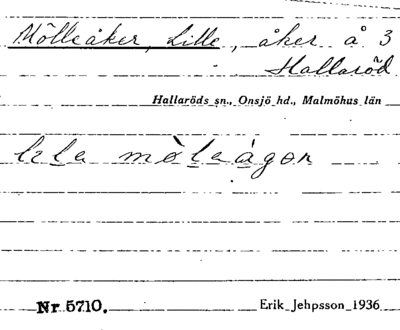 Mölleåker, Lille, åker å 3
Hallaröd
Hallaröds sn., Onsjö hd., Malmöhus län
lɛla mòleågon
Nr 5710. Erik Jehpsson 1936